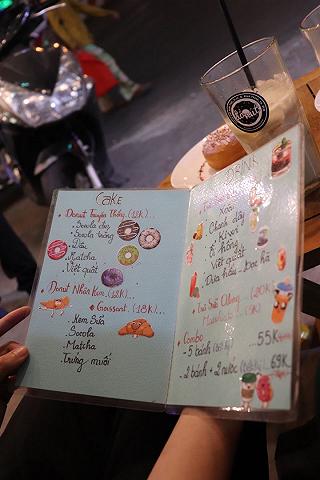 CAKE
• Donut Truyền Thống (12K)...
- Socola đen
- Socola trắng
- Dâu
- Matcha
- Việt quất
• Donut Nhân Kem (12K)...
• Croissant (18K)...
- Kem Sữa
- Socola
- Matcha
- Trứng muối
DRINK
Xoài
- Chanh dây
- Kiwi
- Việt quất
- Dưa hấu - Bạc hà
(20K)
5K)
Combo
- 5 bánh 55K
- 2 bánh + 2 nước 69K